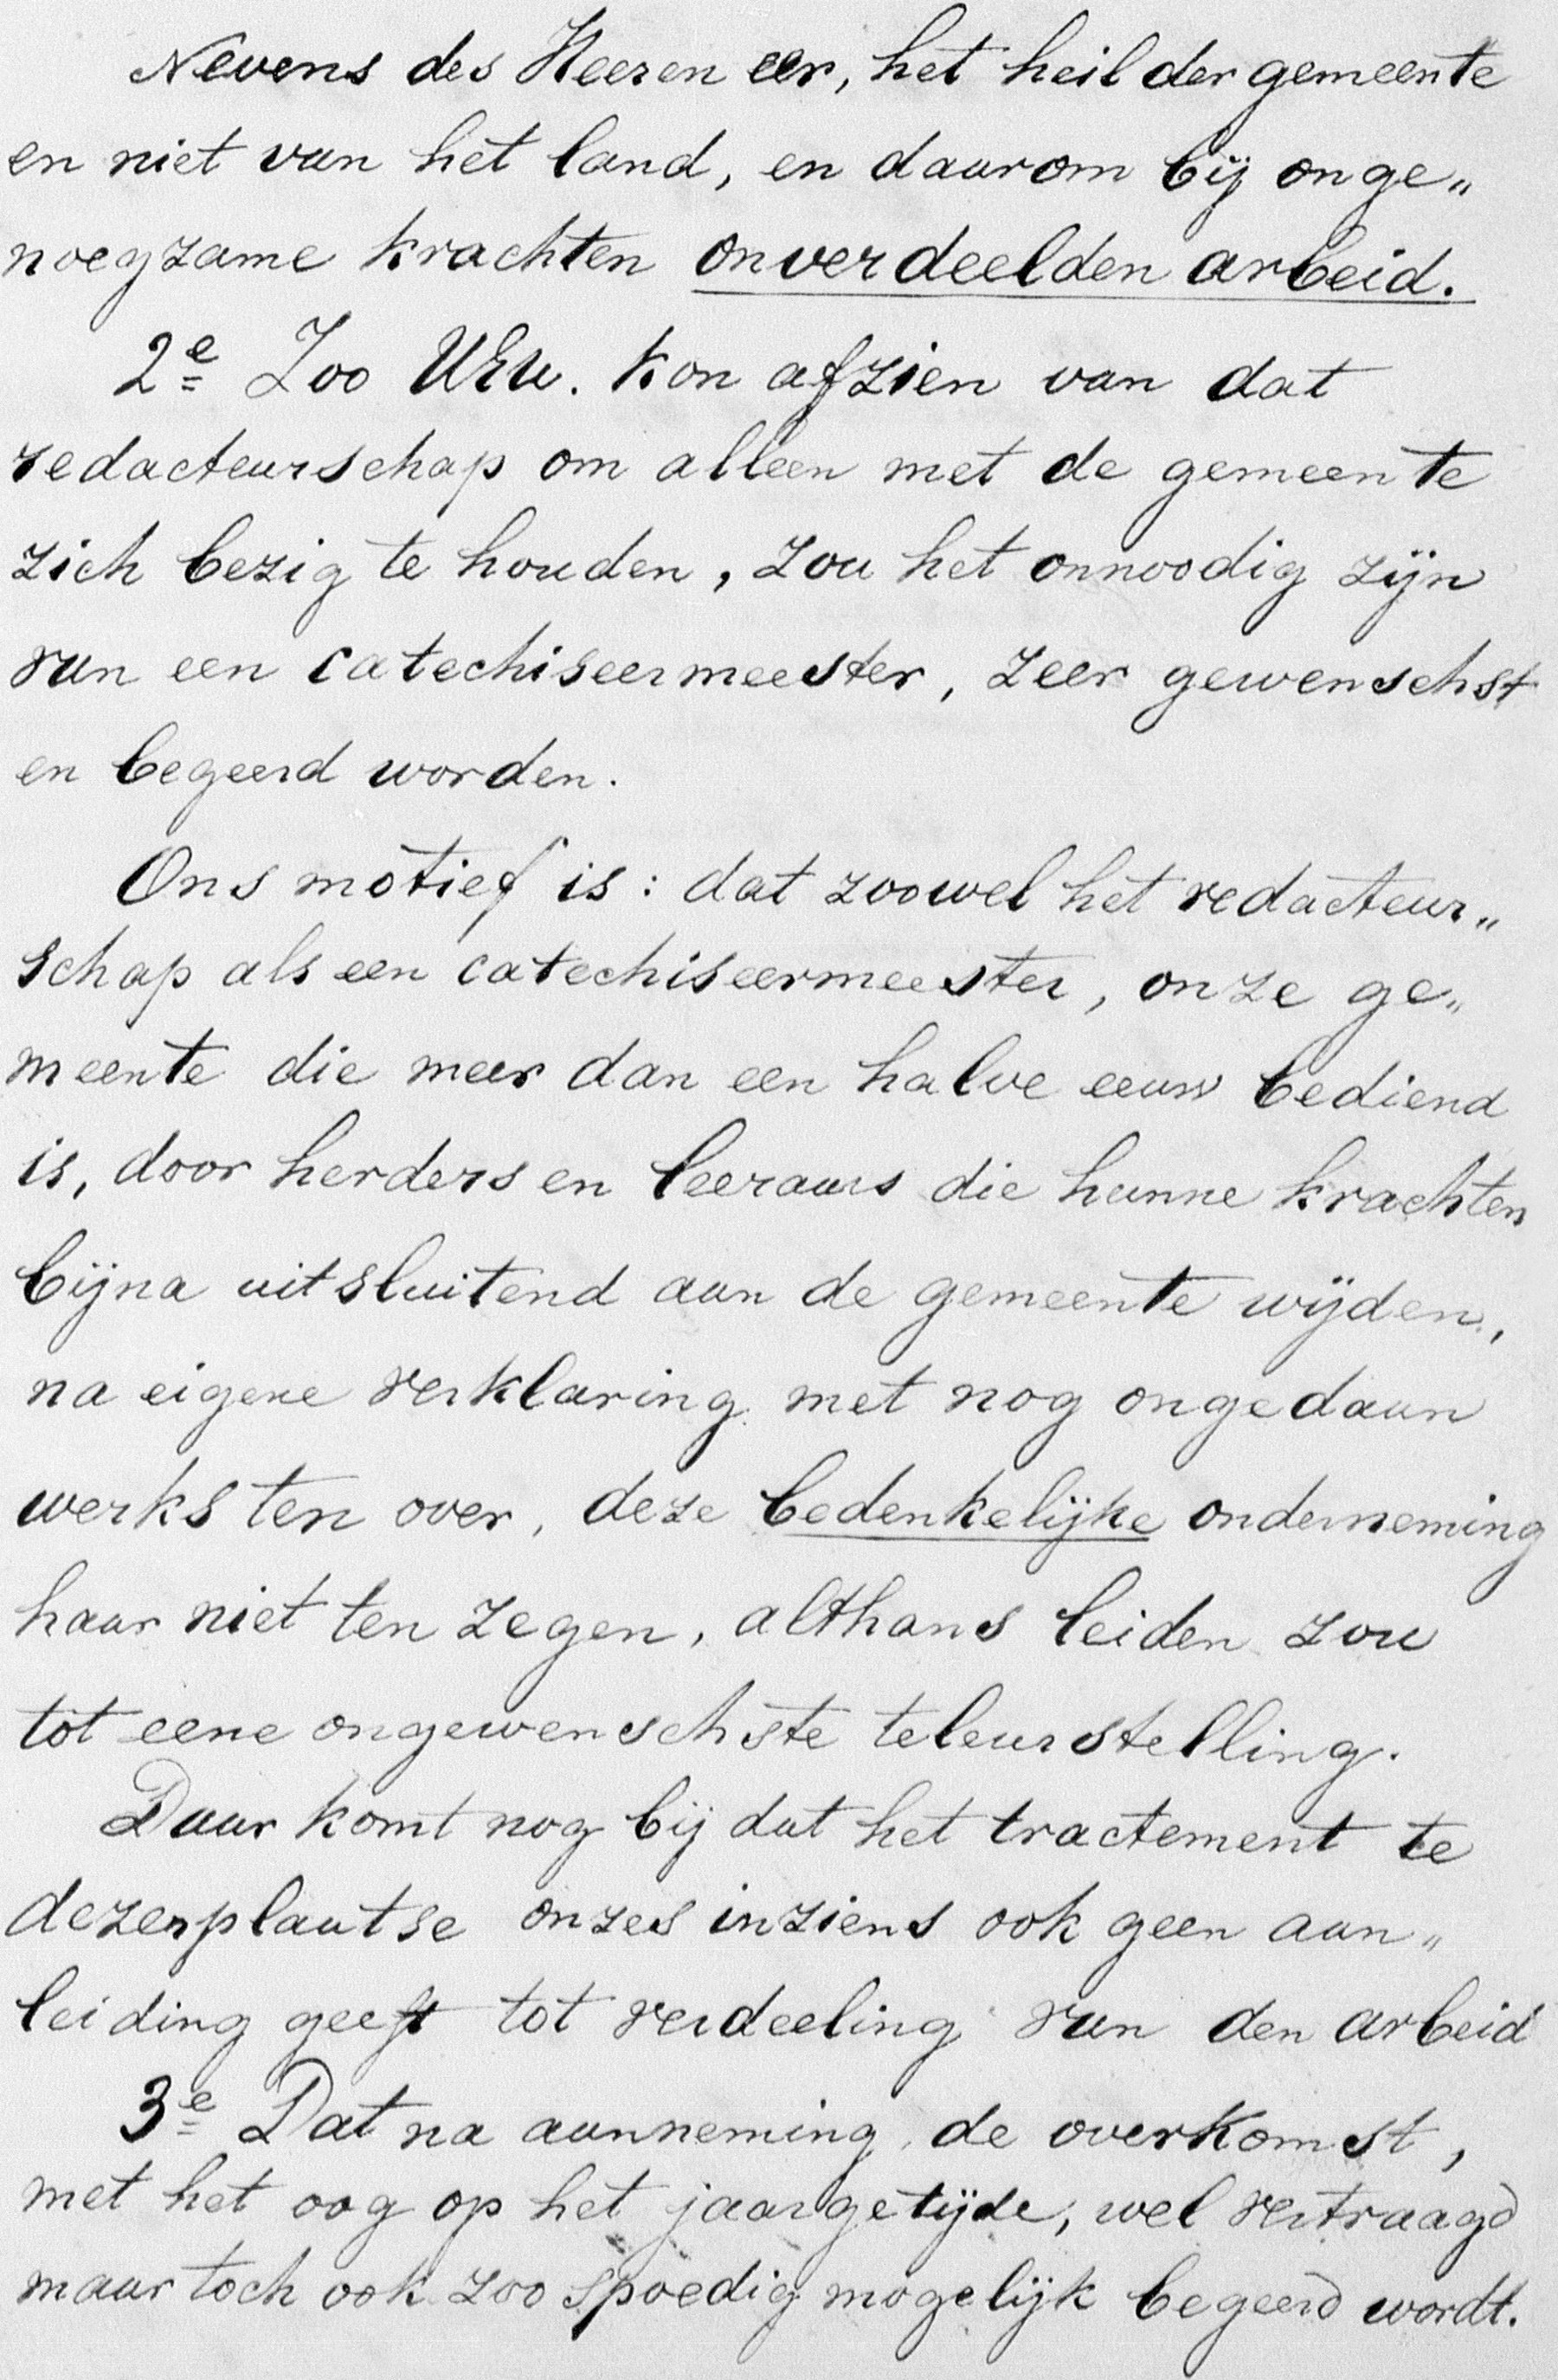 Nevens des Heeren eer, het heil der gemeente
en niet van het land, en daarom bij onge„
noegzame krachten onverdeelden arbeid.
2e Zoo UEw. kon afzien van dat
redacteurschap om alleen met de gemeente
zich bezig te houden, zou het onnoodig zijn
van een catechiseermeester, zeer gewenschst
en begeerd worden.
Ons motief is: dat zoowel het redacteur„
schap als een catechiseermeester, onze ge„
meente die meer dan een halve eeuw bediend
is, door herders en leeraars die hunne krachten
bijna uitsluitend aan de gemeente wijden,
na eigene verklaring met nog ongedaan
werks ten over, deze bedenkelijke onderneming
haar niet ten zegen, althans leiden zou
tot eene ongewenschste teleurstelling.
Daar komt nog bij dat het tractement te
dezerplaatse onzes inziens ook geen aan„
leiding geeft tot verdeeling van den arbeid
3e Dat na aanneming, de overkomst,
met het oog op het jaargetijde, wel vertraagd
maar toch ook zoo spoedig mogelijk begeerd wordt.